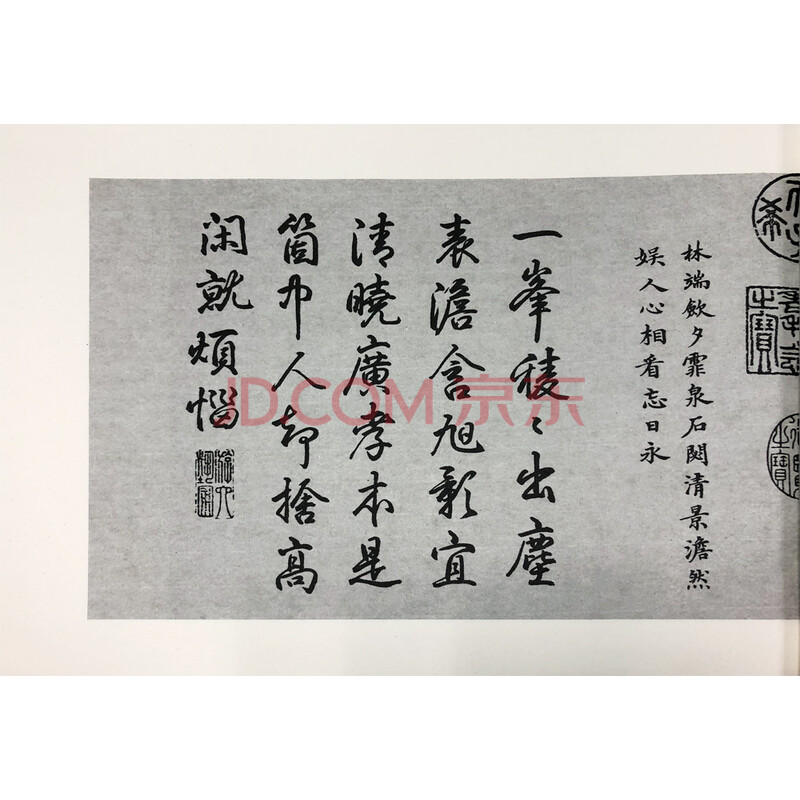 林端歛夕霏泉石閟清景澹然
娱人心相看忘日永
一峯稜〻出塵
表澹含旭彩宜
清曉廣孝本是
箇中人却捨高
閑就煩惱
JD.COM 京东